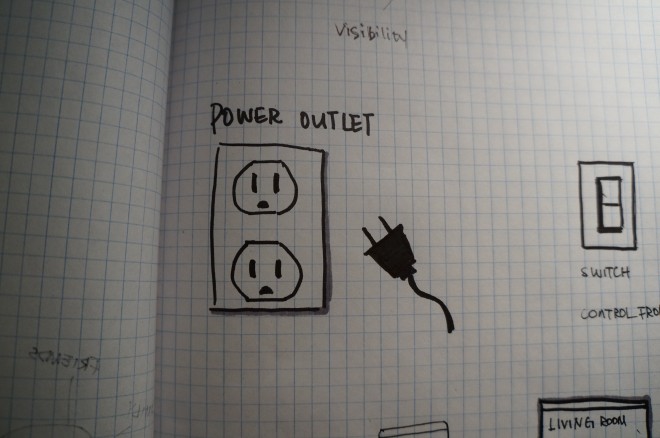 Visibility
POWER OUTLET
SWITCH
CONTROL
LIVING ROOM
FRIENDS